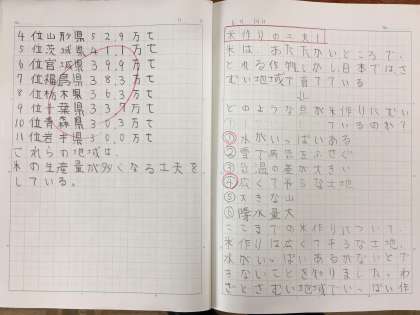 4位山形県52.9万t
5位茨城県41.1万t
6位宮城県39.9万t
7位福島県38.3万t
8位栃木県36.3万t
9位千葉県33.7万t
10位青森県30.3万t
11位岩手県30.0万t
これらの地域は、
米の生産量が多くなる工夫を
している。
米作りの
米は、あたたかいところで、
とれる作物しかし日本では、さ
むい地域で育てている
どのような
ているのか?
①水がいっぱいある
②雪で病害をふせぐ
③気温の差が大きい
④広くて平らな土地
⑤大きな山
⑥降水量大
ここまでの米作りについて、
米作りは広くて平らな土地、
水がいっぱいあるがないとで
きないことを知りました。わ
ざとさむい地域でいっぱい作